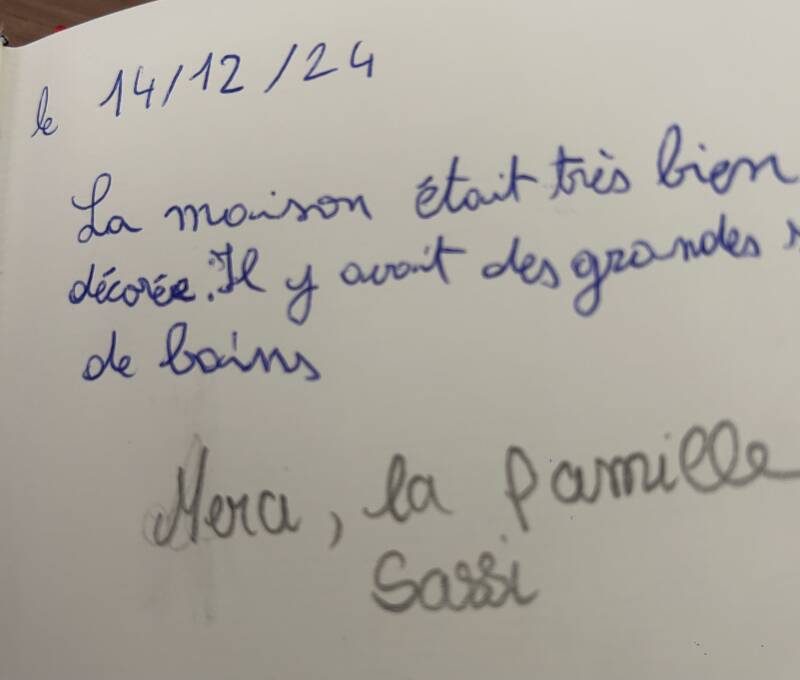 le 14/12/24
La maison était très bien
décorée. Il y avait des grandes
de bains
Mera, la famille
Sassi